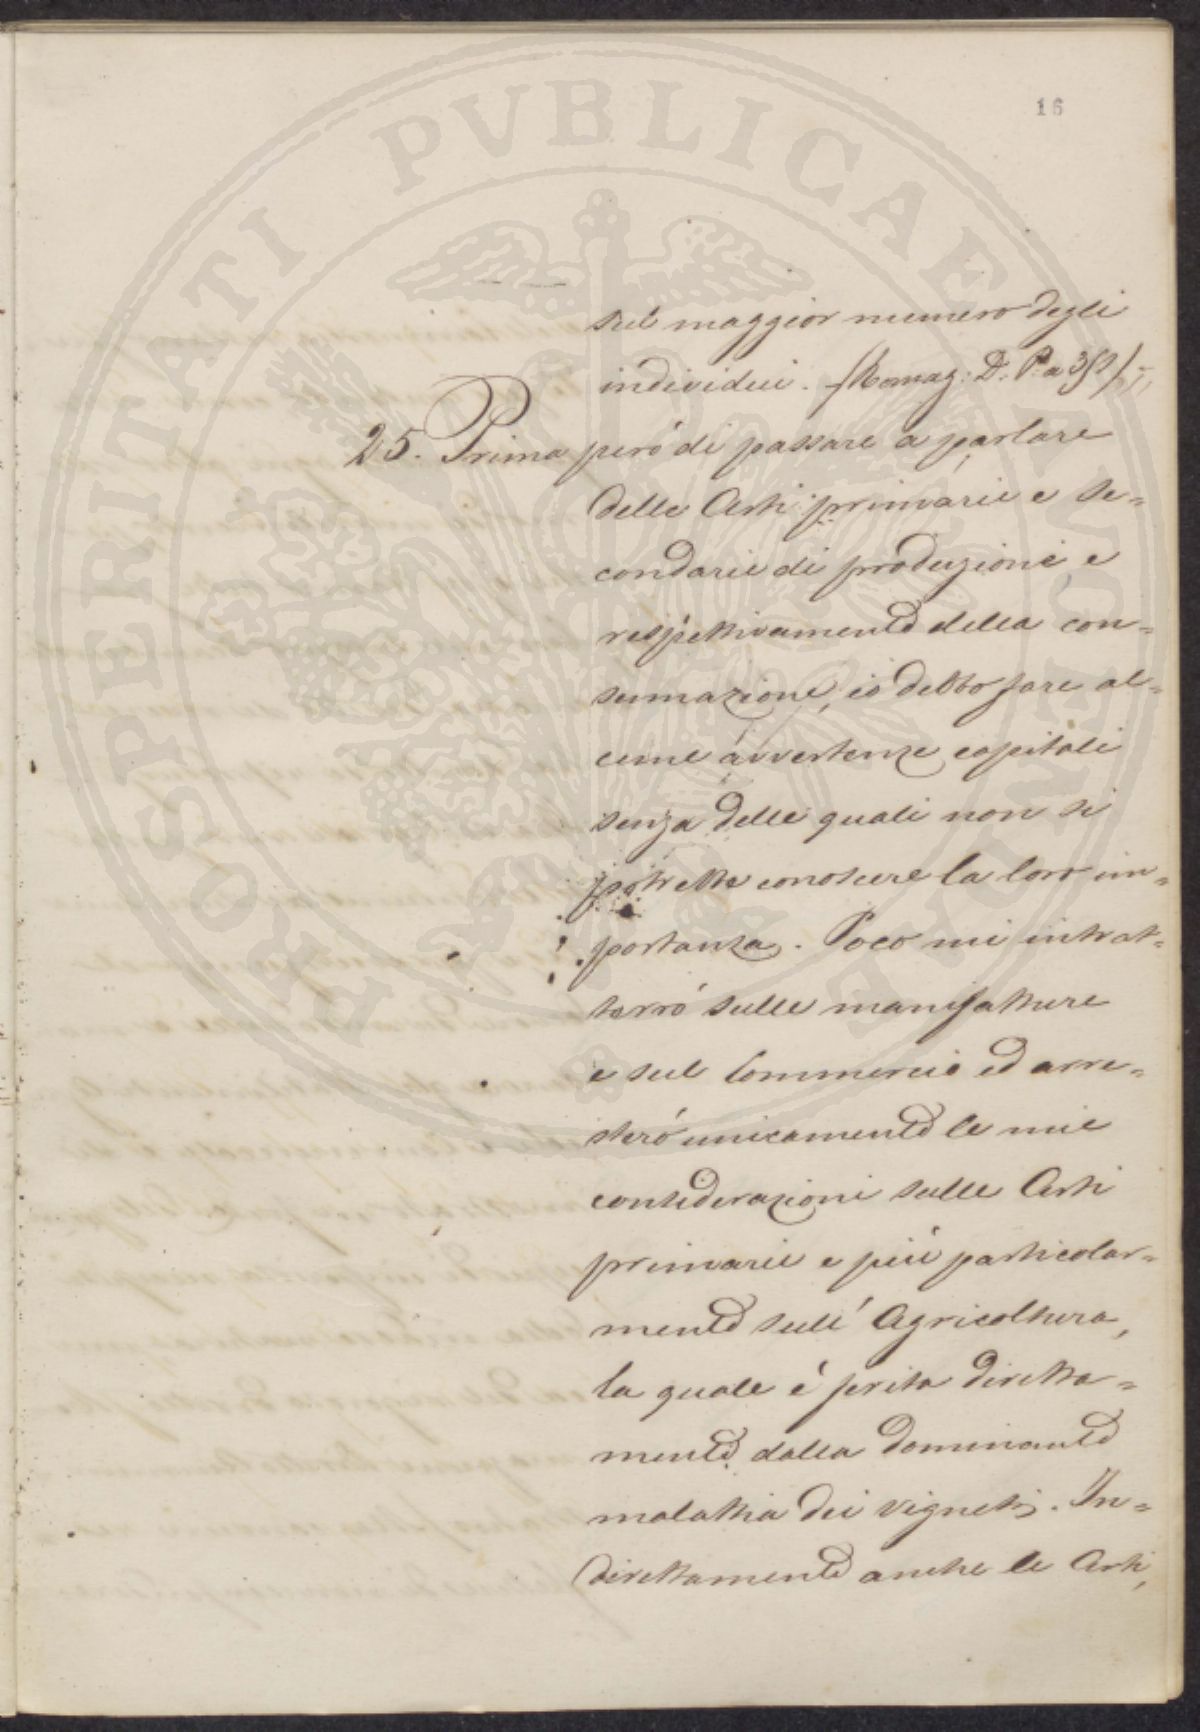 16
PROSPERITATI PVBLICAE AVGENDAE
sul maggior numero degli
individui. (Romag: D. P.a
25. Prima peró di passare a parlare
delle Arti primarie e se=
condarie di produzione, e
respettivamente della con=
sumazione, io debbo fare al=
cune avvertenze capitali
senza delle quali non si
potrebbe conoscere la loro im=
portanza. Poco mi intrat=
terró sulle manifatture
e sul Commercio ed arre=
steró unicamente le mie
considerazioni sulle Arti
primarie e piú particolar=
mente sull' Agricoltura,
la quale é ferita diretta=
mente dalla dominante
malattia dei vigneti. In=
direttamente anche le Arti,